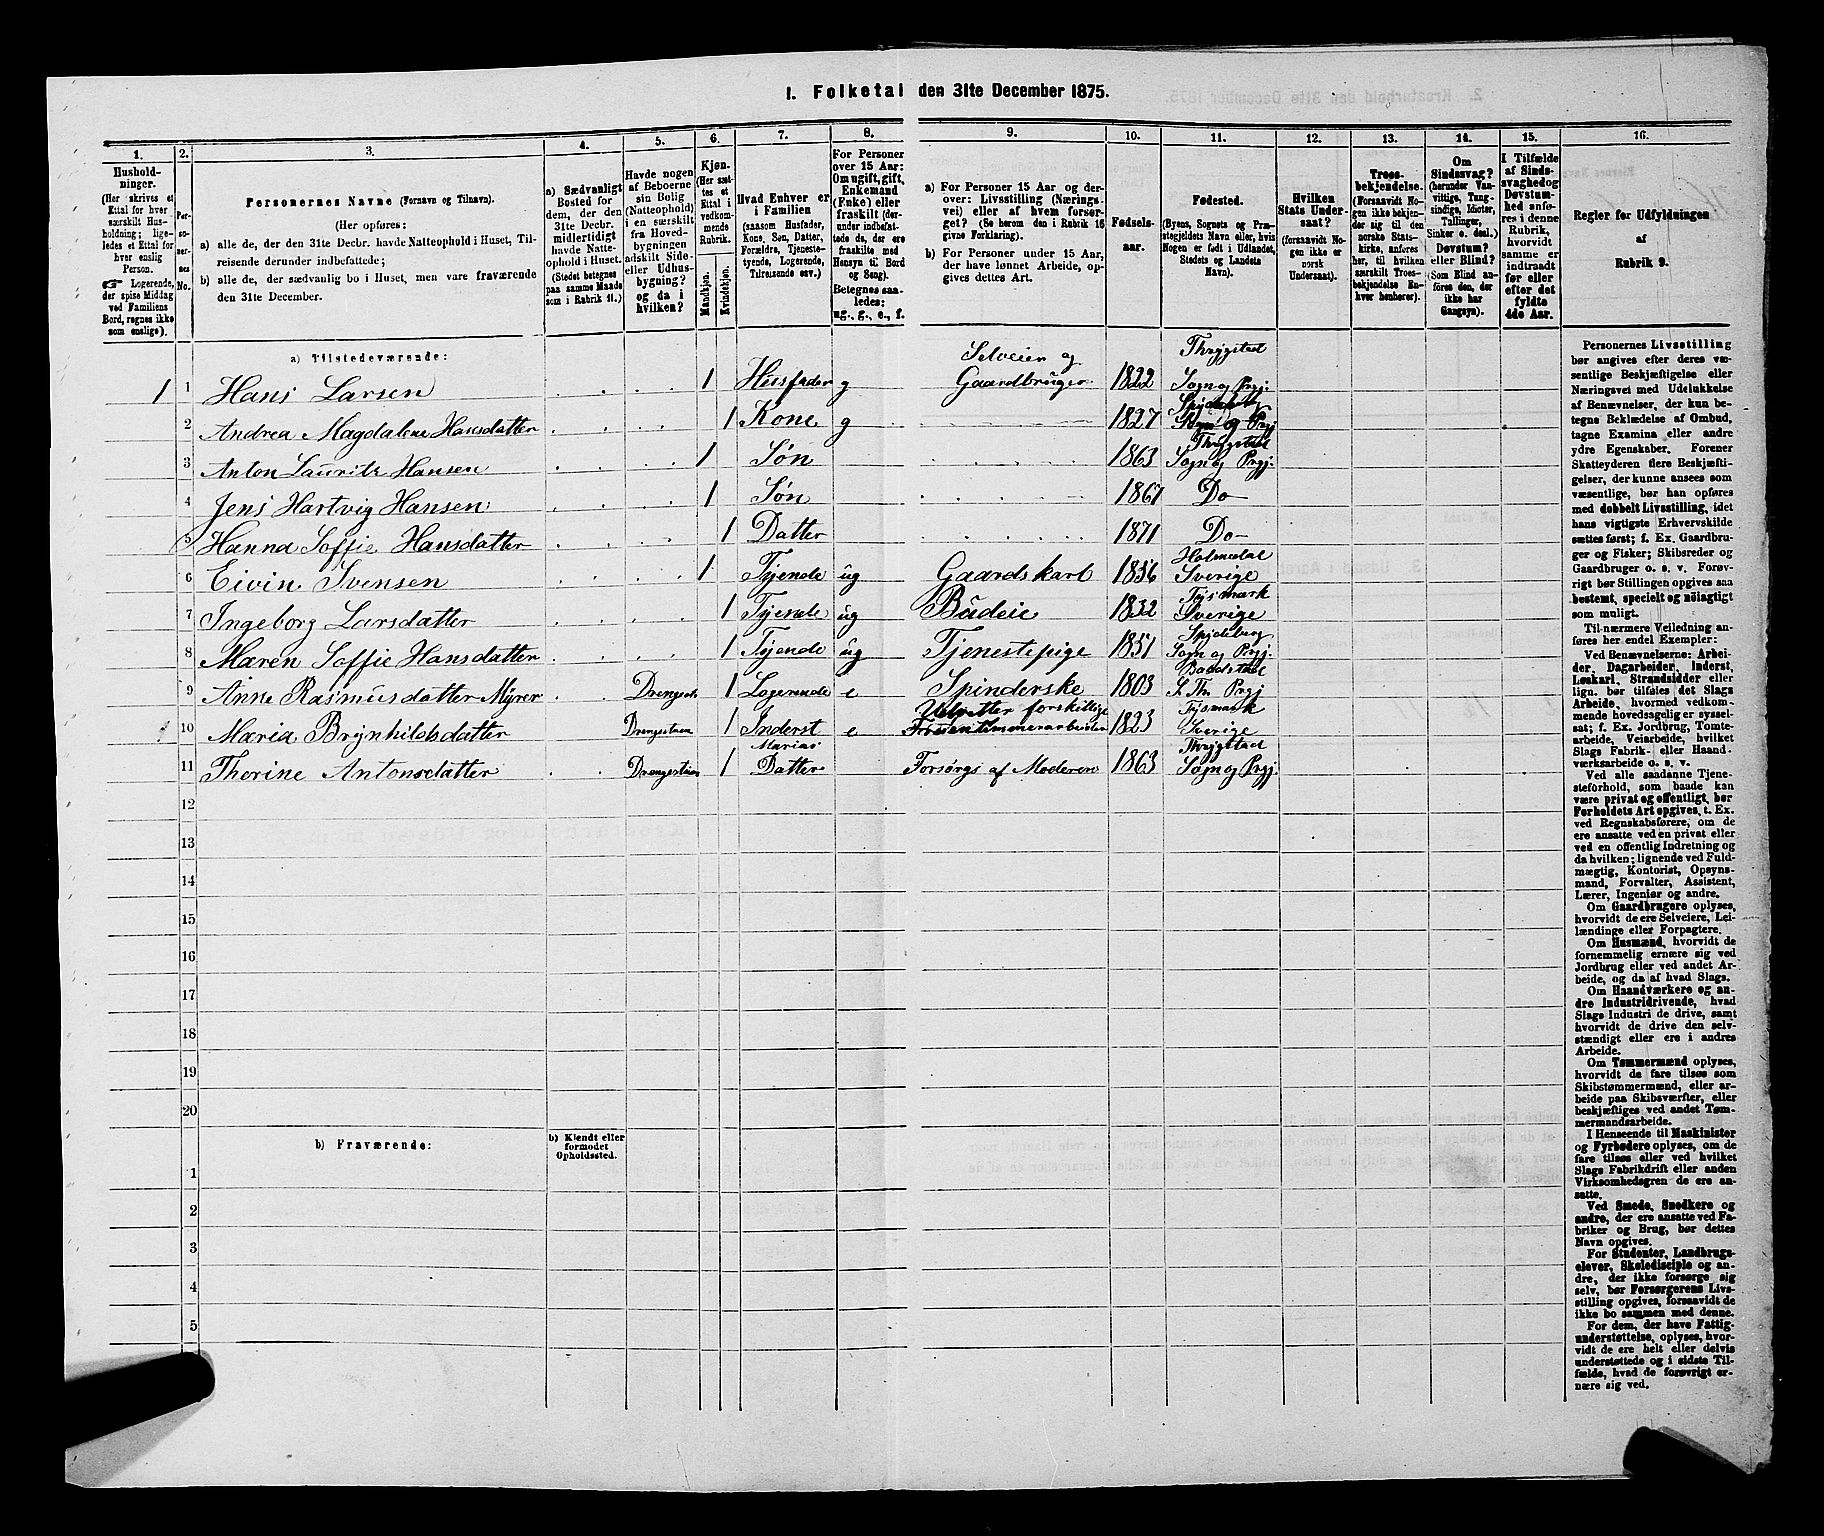 1. Folketal den 31te December 1875.
1.
2.
3.
4.
5.
6.
7.
8.
9.
10.
11.
12.
13.
14.
15.
16.
Husholdninger.
(Her skrives et Ettal for hver særskilt Husholdning; ligeledes et Ettal for hver enslig Person.
☞ Logerende, der spise Middag ved Familiens Bord, regnes ikke som enslige).
Personernes No.
Personernes Navne (Fornavn og Tilnavn).
(Her opføres:
a) alle de, der den 31te Decbr. havde Natteophold i Huset, Tilreisende derunder indbefattede;
b) alle de, der sædvanlig bo i Huset, men vare fraværende den 31te December.
a) Sædvanligt Bosted for dem, der den 31te Decbr. midlertidigt havde Natteophold i Huset.
(Stedet betegnes paa samme Maade som i Rubrik 11.)
Havde nogen af Beboerne sin Bolig (Natteophold) i en særskilt fra Hovedbygningen adskilt Side- eller Udhusbygning? og da i hvilken?
Kjøn.
(Her sættes et Ettal i vedkommende Rubrik.
Mandkjøn.
Kvindekjøn.
Hvad Enhver er i Familien
(saasom Husfader, Kone, Søn, Datter, Forældre, Tjenestetyende, Logerende, Tilreisende osv.)
For Personer over 15 Aar: Om ugift, gift, Enkemand (Enke) eller fraskilt (derunder indbefattede de, der ere fraskilte med Hensyn til Bord og Seng).
Betegnes saaledes: ug., g., e., f.
a) For Personer 15 Aar og derover: Livsstilling (Næringsvei) eller af hvem forsørget? (Se herom den i Rubrik 16 givne Forklaring).
b) For Personer under 15 Aar, der have lønnet Arbeide, opgives dettes Art.
Fødselsaar.
Fødested.
(Byens, Sognets og Præstegjeldets Navn eller, hvis Nogen er født i Udlandet, Stedets og Landets Navn).
Hvilken Stats Undersaat?
(forsaavidt Nogen ikke er norsk Undersaat).
Troesbekjendelse.
(Forsaavidt Nogen ikke bekjender sig til den norske Statskirke, anføres her, til hvilken særskilt Troesbekjendelse Enhver henhører).
Om Sindssvag?
(herunder Vanvittige, Tungsindige, Idioter, Tullinger, Sinker o. desl.)
Døvstum? eller Blind?
(Som Blind anføres den, der ikke har Gangsyn).
I Tilfælde af Sindssvaghed og Døvstumhed anføres i denne Rubrik, hvorvidt samme er indtraadt før eller efter det fyldte 4de Aar.
Regler for Udfyldningen af Rubrik 9.
a) Tilstedeværende:
1 1 Hans Larsen 1 Husfader g Selveier og Gaardbruger 1822 Thrygstad Sogn og Prgj.
2 Andrea Magdalene Hansdatter 1 Kone g 1827 Spydeberg Sogn og Prgj
3 Anton Lauritz Hansen 1 Søn 1863 Thrygstad Sogn og Prgj.
4 Jens Hartvig Hansen 1 Søn 1867 Do
5 Hanna Soffie Hansdatter 1 Datter 1871 Do
6 Eivin Svensen 1 Tyende ug Gaardskarl 1856 Holmedal Sverige
7 Ingeborg Larsdatter 1 Tyende ug Budeie 1832 Tysmark Sverige
8 Maren Soffie Hansdatter 1 Tyende ug Tjenestepige 1851 Spydeberg Sogn og Prgj.
9 Anne Rasmusdatter Myrer 1 Logerende e Spinderske 1803 Prgj
10 Maria Brynhildsdatter Drengestuen 1 Inderst e Udretter forskjellige 1823 Tysmark Sverige
11 Thorine Antonsdatter Drengestuen 1 Marias Datter Forsørgs af Moderen 1863 Thrygstad Sogn og Prgj.
12
13
14
15
16
17
18
19
20
b) Fraværende:
b) Kjendt eller formodet Opholdssted.
1
2
3
4
5
Personernes Livsstilling
bør angives efter deres væ-
sentlige Beskjæftigelse eller
Næringsvei med Udelukkelse
af Benævnelser, der kun be-
tegne Beklædelse af Ombud,
tagne Examina eller andre
ydre Egenskaber. Forener
Skatteyderen flere Beskjæfti-
gelser, der kunne ansees som
væsentlige, bør han opføres
med dobbelt Livsstilling, idet
hans vigtigste Erhvervskilde
sættes først; f. Ex. Gaardbru-
ger og Fisker; Skibsreder og
Gaardbruger o. s. v. Forøv-
rigt bør Stillingen opgives saa
bestemt, specielt og nöiagtigt
som muligt.
Til nærmere Veiledning an-
føres her endel Exempler:
Ved Benævnelserne: Arbei-
der, Dagarbeider, Inderst,
Løskarl, Strandsidder eller
lign. bør tilføies det Slags
Arbeide, hvormed vedkom-
mende hovedsagelig er syssel-
sat; f. Ex. Jordbrug, Tomte-
arbeide, Veiarbeide, hvilket
Slags Fabrik- eller Haand-
værksarbeide o. s. v.
Ved alle saadanne Tjene-
steforhold, som baade kan
være privat og offentligt, bør
Forholdets Art opgives, t. Ex.
ved Regnskabsførere, om de
ere ansatte ved en privat eller
ved en offentlig Indretning og
da hvilken; lignende ved Fuld-
mægtig, Kontorist, Opsyns-
mand, Forvalter, Assistent,
Lærer, Ingeniør og andre.
Om Gaardbrugere oplyses,
hvorvidt de ere Selveiere, Lei-
lændinge eller Forpagtere.
Om Husmænd, hvorvidt de
fornemmelig ernære sig ved
Jordbrug eller ved andet Ar-
beide, og da af hvad Slags.
Om Haandværkere og an-
dre Industridrivende, hvad
Slags Industri de drive, samt
hvorvidt de drive den selv-
stændigt eller ere i andres
Arbeide.
Om Tømmermænd oplyses,
hvorvidt de fare tilsøs som
Skibstømmermænd, eller ar-
beide paa Skibsværfter, eller
beskjæftiges ved andet Tøm-
mermandsarbeide.
I Henseende til Maskinister
og Fyrbødere oplyses, om de
fare tilsøs eller ved hvilket
Slags Fabrikdrift eller anden
Virksomhedsgren de ere an-
satte.
Ved Smede, Snedkere og
andre, der ere ansatte ved Fa-
briker og Brug, bør dettes
Navn opgives.
For Studenter, Landbrugs-
elever, Skoledisciple og an-
dre, der ikke forsørge sig
selv, bør Forsørgerens Livs-
stilling opgives, forsaavidt de
ikke bo sammen med denne.
For dem, der have Fattig-
understøttelse, oplyses, hvor-
vidt de ere helt eller delvis
understøttede og i sidste Til-
fælde, hvad de forøvrigt er-
nære sig ved.